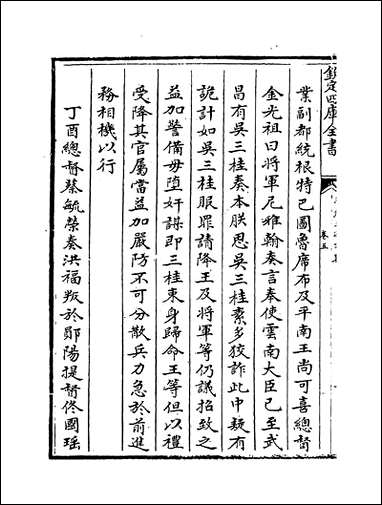 欽定四庫全書
卷五
業副都統根特巴圖魯席布及平南王尚可喜總督
金光祖曰將軍尼雅翰奏言奉使雲南大臣已至武
昌有吳三桂奏本朕思吳三桂素多狡詐此中疑有
詭計如吳三桂服罪請降王及將軍等仍議招致之
益加警備毋墮奸謀即三桂束身歸命王等但以禮
受降其官屬當益加嚴防不可分散兵力急於前進
務相機以行
丁酉總督蔡毓榮奏洪福叛於鄖陽提督佟國瑤